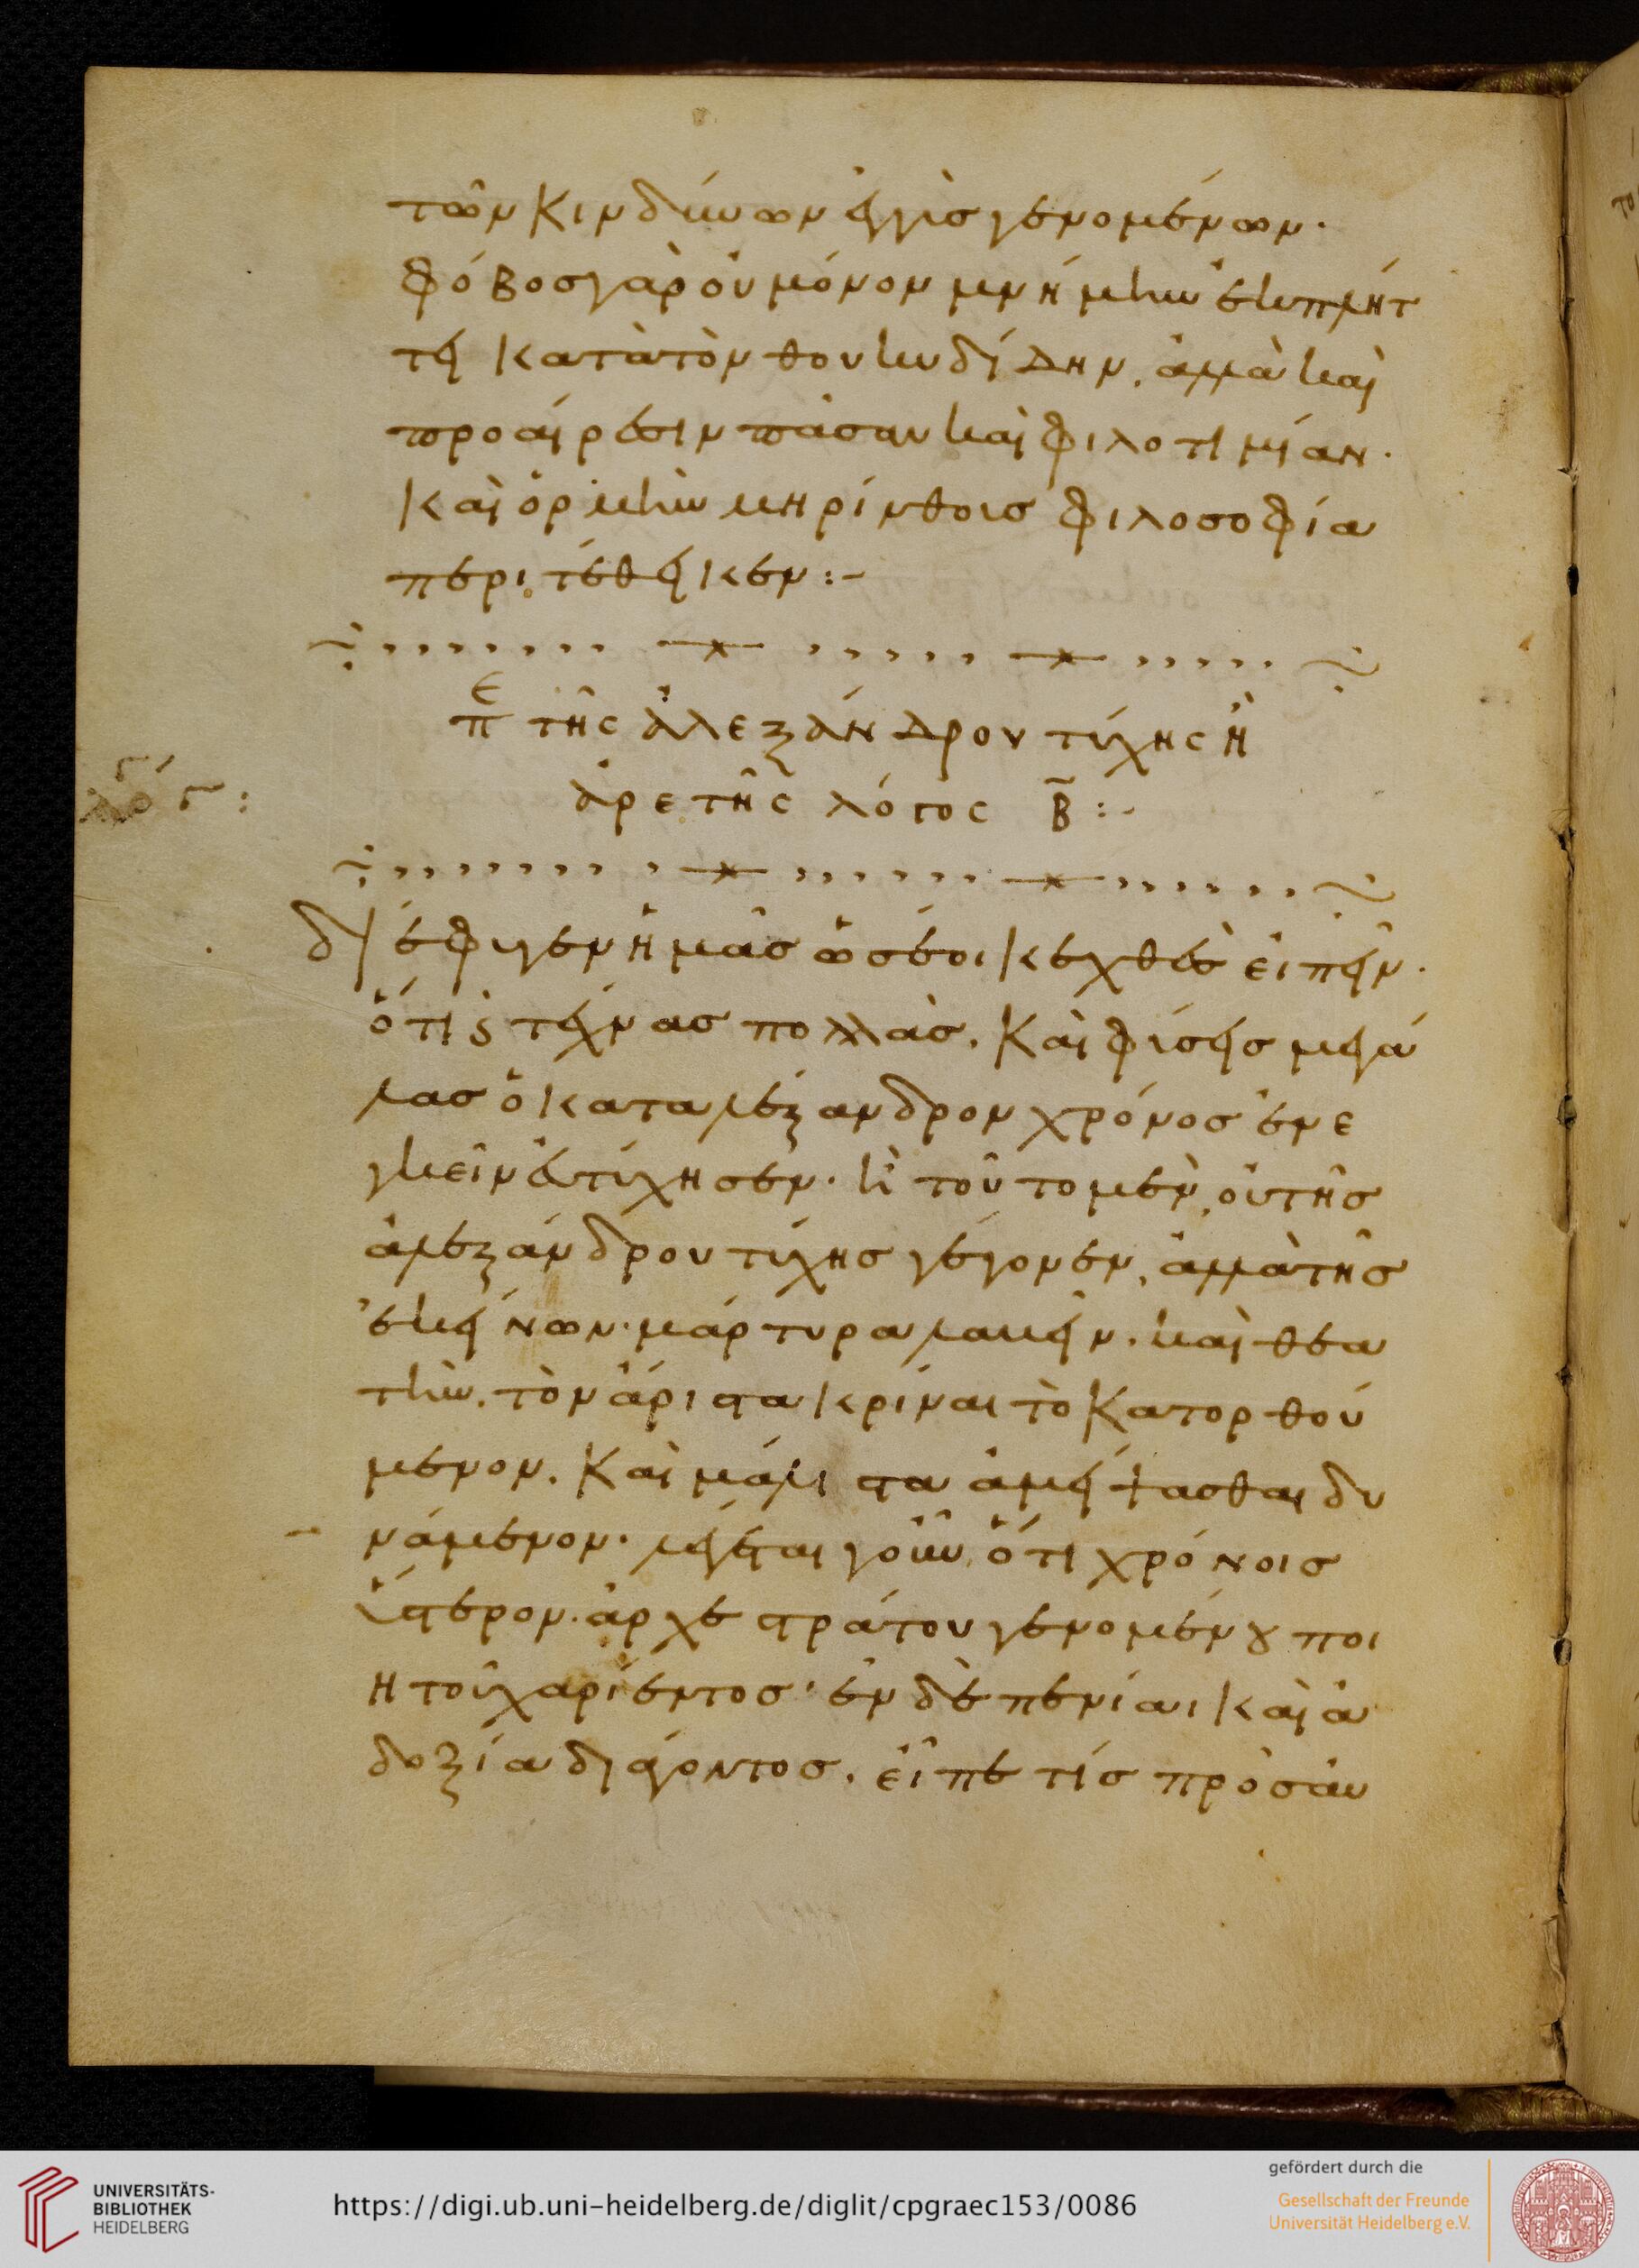 τῶν κινδύνων ἐγγὺς γενομένων·
φόβος γὰρ οὐ μόνον μνήμην ἐκπλήτ
τει κατὰ τὸν θουκυδίδην, ἀλλὰ καὶ
προαίρεσιν πᾶσαν καὶ φιλοτιμίαν·
καὶ ὁρμὴν μηρίνθοις φιλοσοφία
περιτέθεικεν:-
πε τῆς ἀλεξάνδρου τύχης ἢ
ἀρετῆς λόγος Β̄:-
διέφυγεν ἡμᾶς ὡς ἔοικε χθὲς εἰπεῖν·
ὅτι ϛ τέχνας πολλὰς, καὶ φύσεις μεγά
λας ὁ κατ ἀλέξανδρον χρόνος ἐνε
γκεῖν εὐτύχησεν· ἢ τοῦτο μὲν, οὐ τῆς
ἀλεξάνδρου τύχης γέγονεν, ἀλλὰ τῆς
ἐκείνων· μάρτυρα λαβεῖν· καὶ θεα
τὴν, τὸν ἄριστα κρῖναι τὸ κατορθού
μενον, καὶ μάλιστα ἀμείψασθαι δυ
νάμενον· λέγεται γοῦν, ὅτι χρόνοις
ὕστερον· ἀρχεστράτου γενομένου ποι
ητοῦ χαρίεντος· ἐν δὲ πενίαι καὶ ἀ
δοξία διάγοντος, εἶπέ τις πρὸς αυ
UNIVERSITÄTS-
BIBLIOTHEK
HEIDELBERG
https://digi.ub.uni-heidelberg.de/diglit/cpgraec153/0086
gefördert durch die
Gesellschaft der Freunde
Universität Heidelberg e.V.